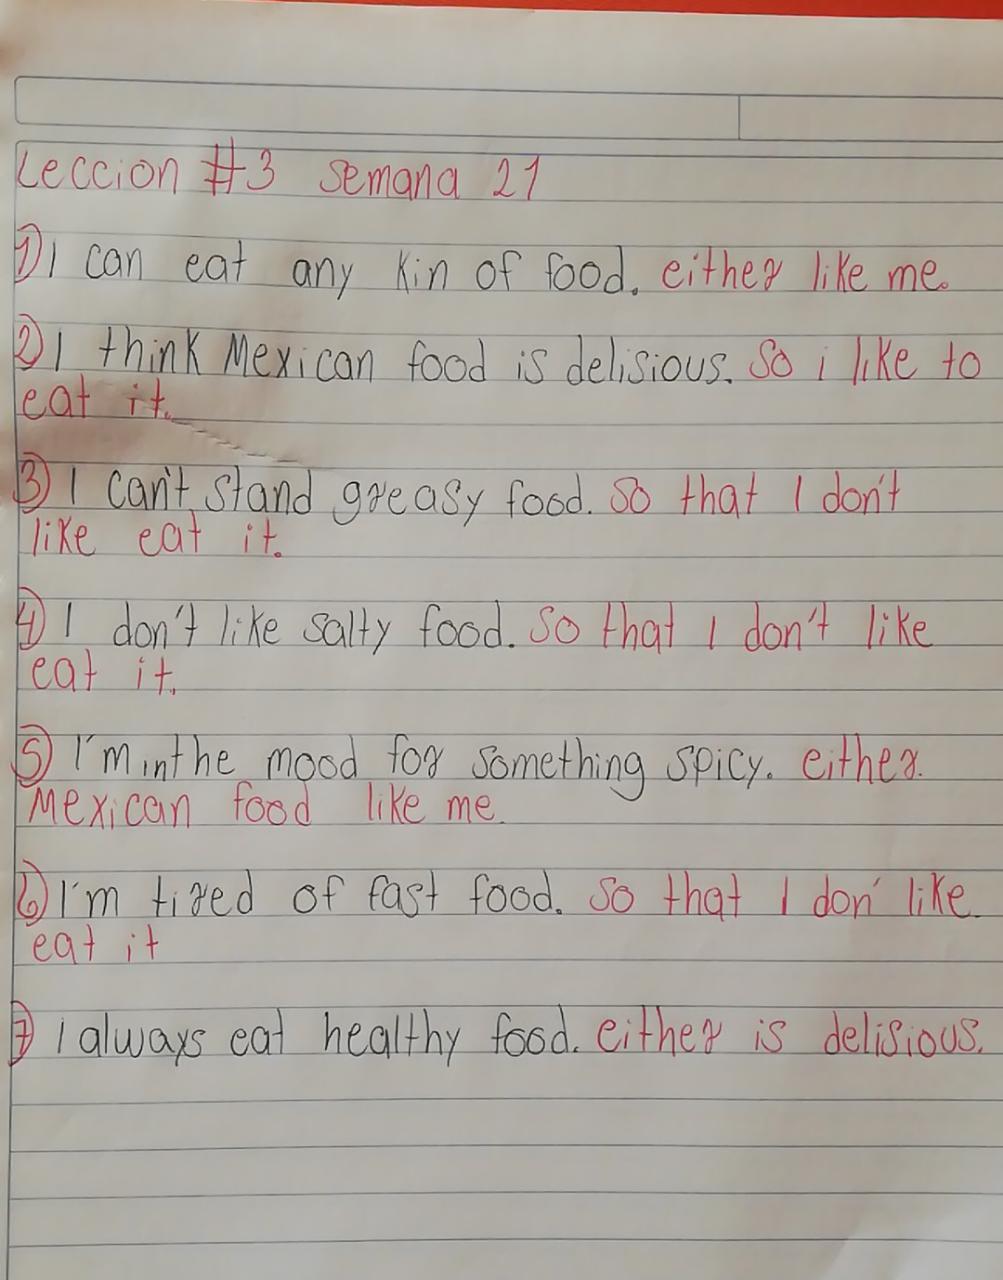 Leccion #3 semana 21
1) I can eat any kin of food. either like me.
2) I think Mexican food is delisious. So i like to
eat it.
3) I can't stand greasy food. So that I don't
like eat it.
4) I don't like salty food. So that I don't like
eat it.
5) I'm in the mood for something spicy. either.
Mexican food like me.
6) I'm tired of fast food. So that I don' like.
eat it
7) I always eat healthy food. either is delisious.